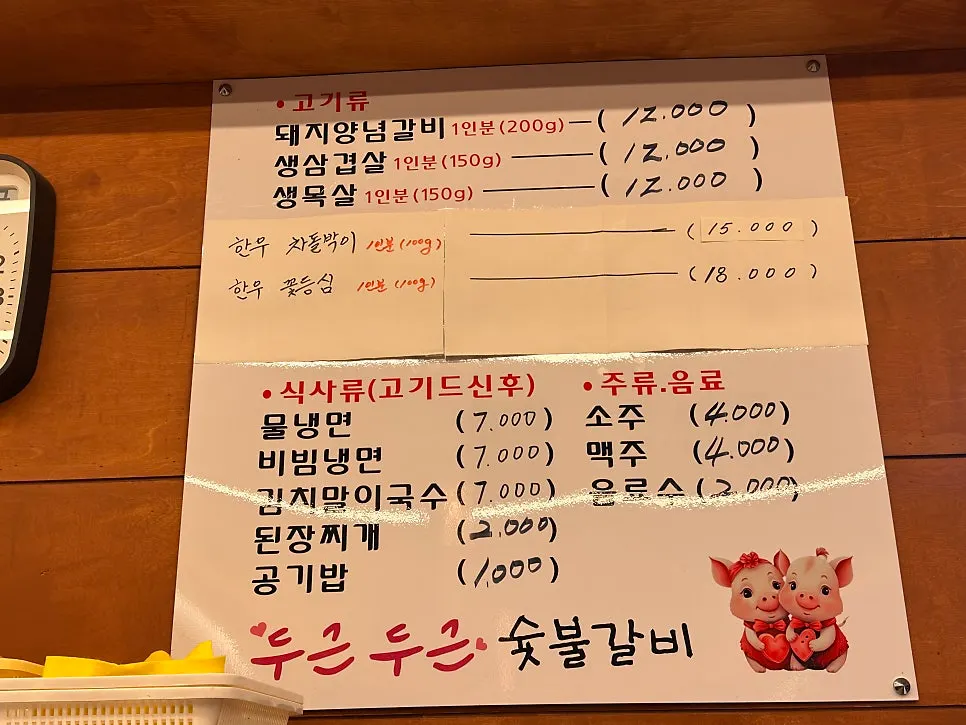 • 고기류
돼지양념갈비 1인분(200g) (12.000)
생삼겹살 1인분(150g) (12.000)
생목살 1인분(150g) (12.000)
한우 차돌박이 1인분(100g) (15.000)
한우 꽃등심 1인분(100g) (18.000)
• 식사류(고기드신후)
물냉면 (7.000)
비빔냉면 (7.000)
김치말이국수 (7.000)
된장찌개 (2.000)
공기밥 (1.000)
• 주류.음료
소주 (4.000)
맥주 (4.000)
음료수 (2.000)
두근두근 숯불갈비